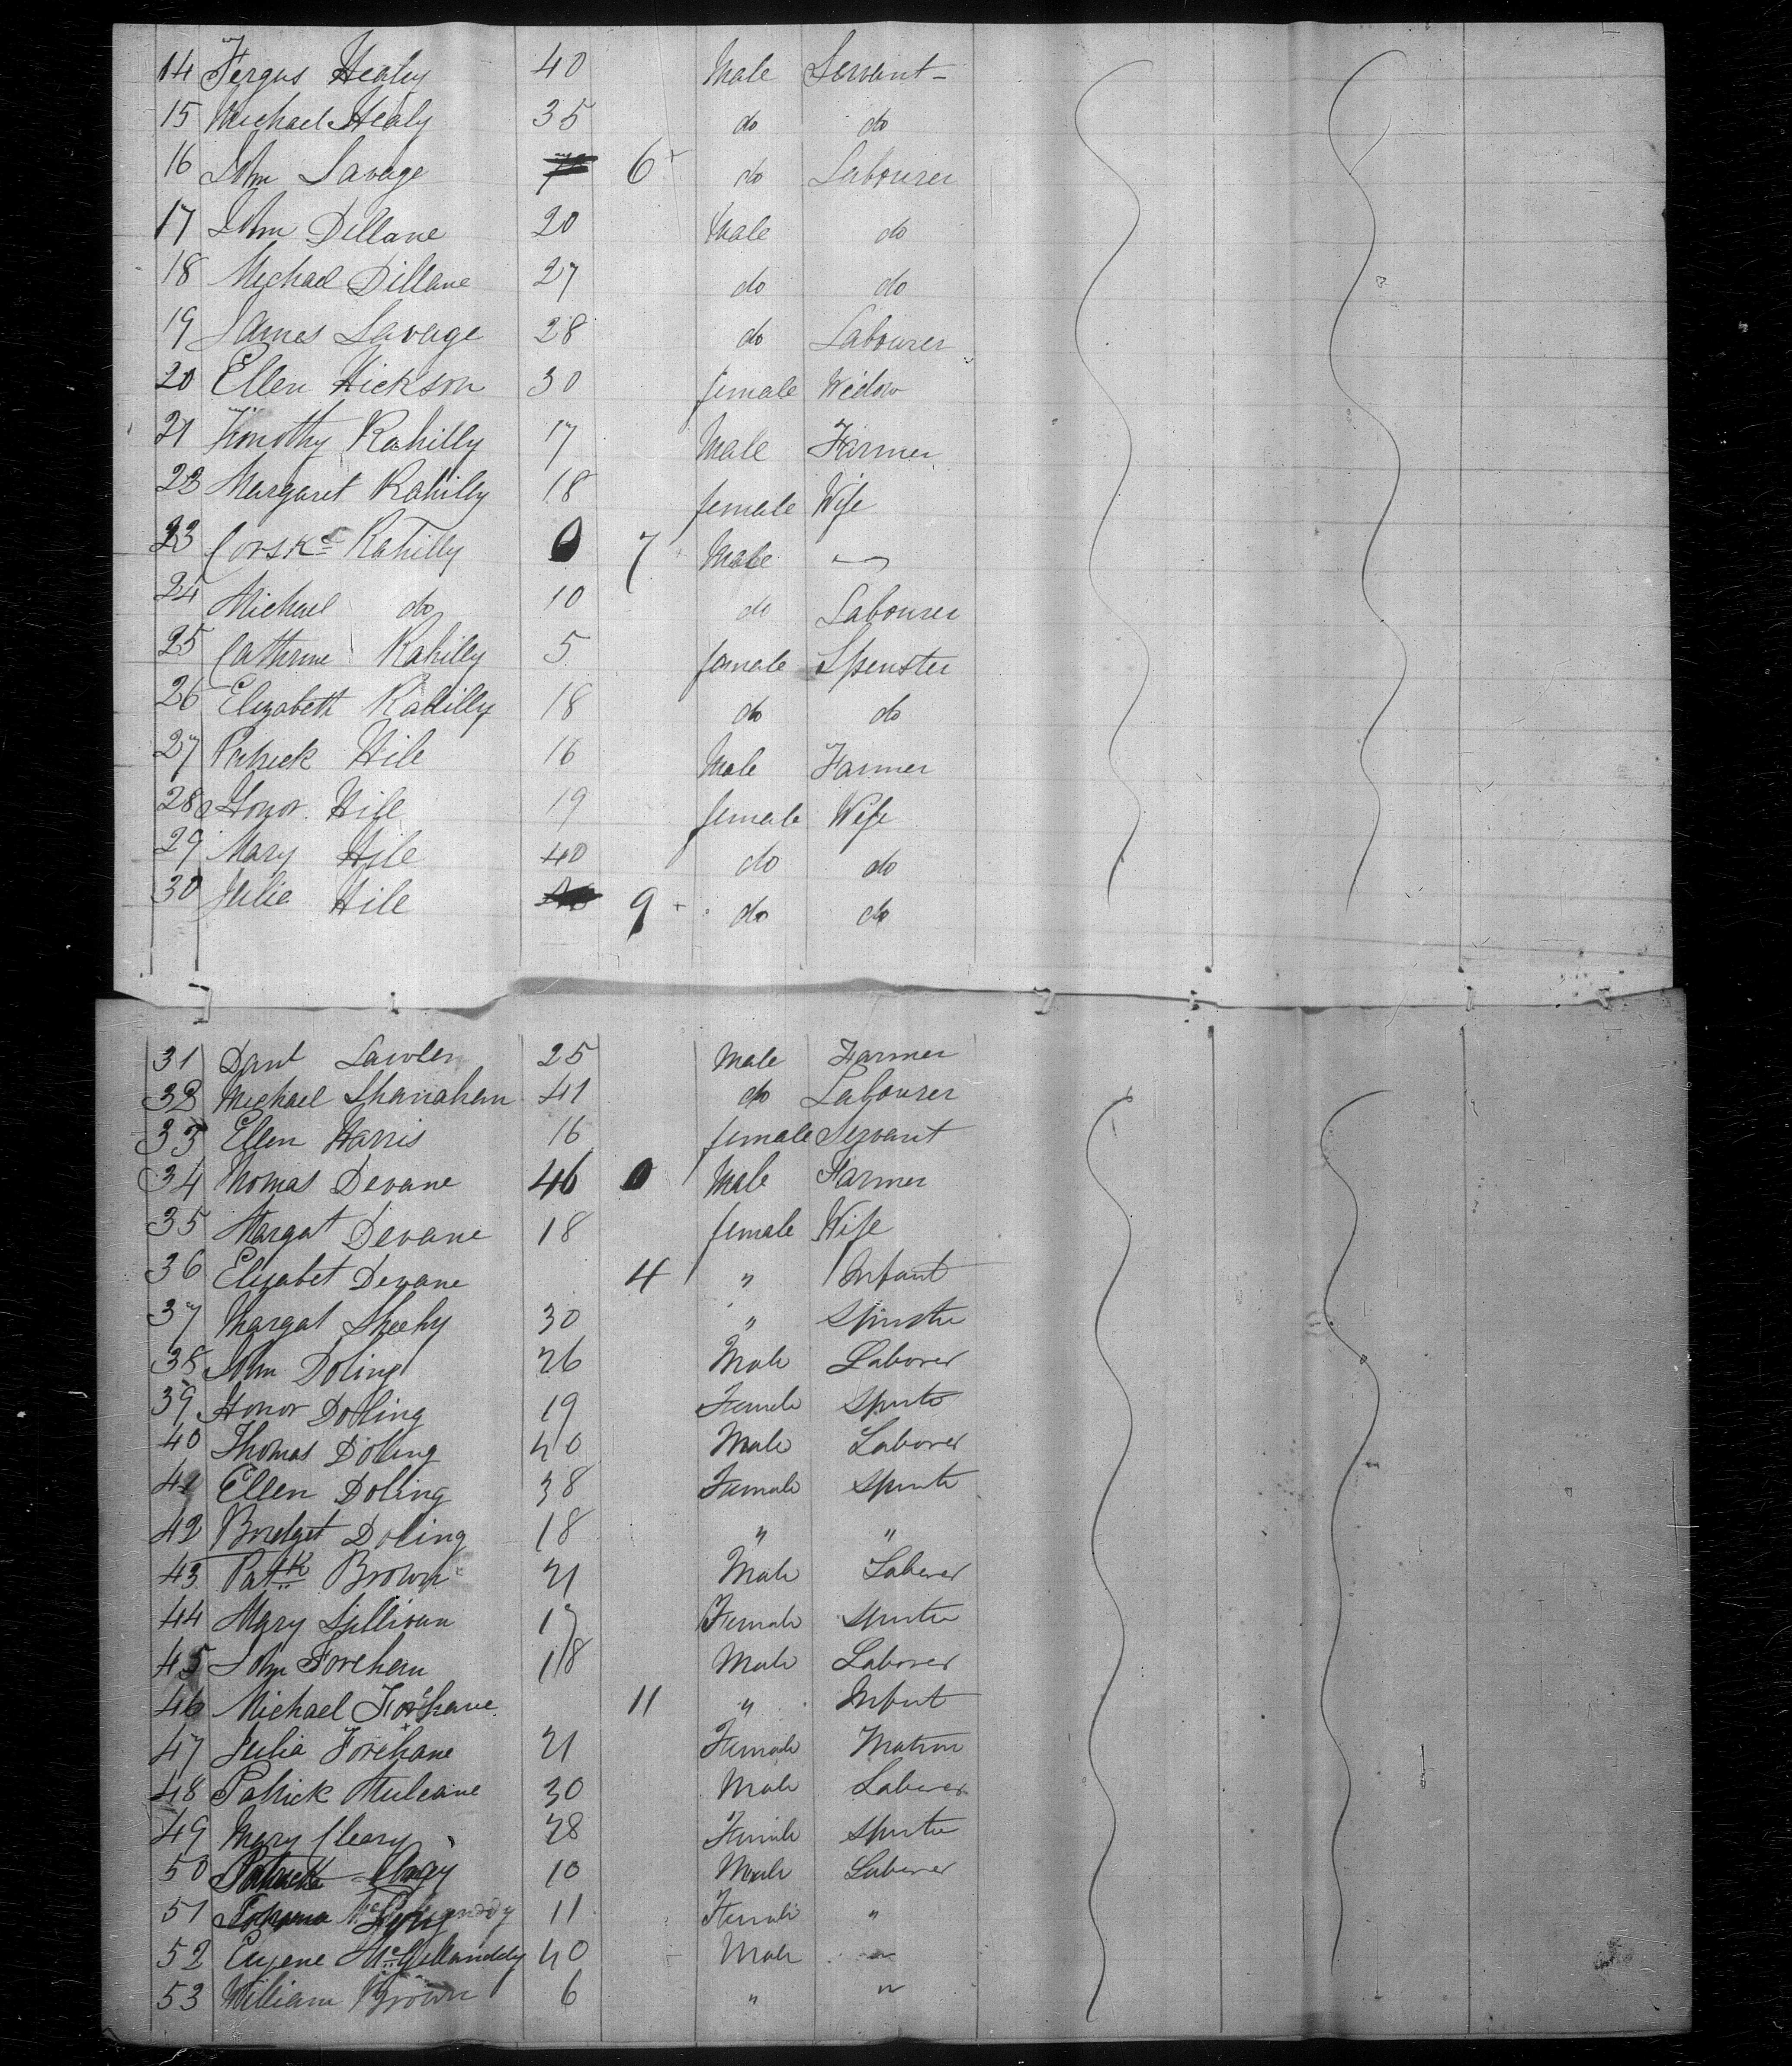 14 Fergus Healy 40 Male Servant
15 Michael Healy 35 do do
16 John Savage 6 do Labourer
17 John Dillane 20 Male do
18 Michael Dillane 27 do do
19 James Savage 28 do Labourer
20 Ellen Hickson 30 female Widow
21 Timothy Rahilly 17 Male Farmer
22 Margaret Rahilly 18 female Wife
23 Rahilly 7 Male
24 Michael do 10 do Labourer
25 Cathrine Rahilly 5 female Spenster
26 Elizabeth Rahilly 18 do do
27 Patrick Hile 16 Male Farmer
28 Honor Hile 19 female Wife
29 Mary Hile 40 do do
30 Julia Hile 9 do do
31 Danl Lawler 25 Male Farmer
32 Michael Shanahan 41 do Labourer
33 Ellen Harris 16 female Servant
34 Thomas Devane 46 Male Farmer
35 Margat Devane 18 female Wife
36 Elizabet Devane 4 " Infant
37 Margat Sheehy 30 " Spinster
38 John Doling 26 Male Laborer
39 Honor Doling 19 Female
40 Thomas Doling 40 Male Laborer
41 Ellen Doling 38 Female
42 Bridget Doling 18 " "
43 Patk Brown 21 Male Laborer
44 Mary Sullivan 17 Female
45 John Forehan 18 Male Laborer
46 Michael Forehane 11 " Infant
47 Julia Forehane 21 Female Matron
48 Patrick 30 Male Laborer
49 Mary Cleary 28 Female
50 Patrick 10 Male Laborer
51 11 Female "
52 Eugene McGillanddy 40 Male "
53 William Brown 6 " "